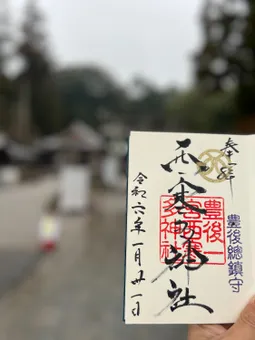 奉拝
豊後總鎮守
豊後一
宮西寒
多神社
西寒多神社
令和六年一月卅一日